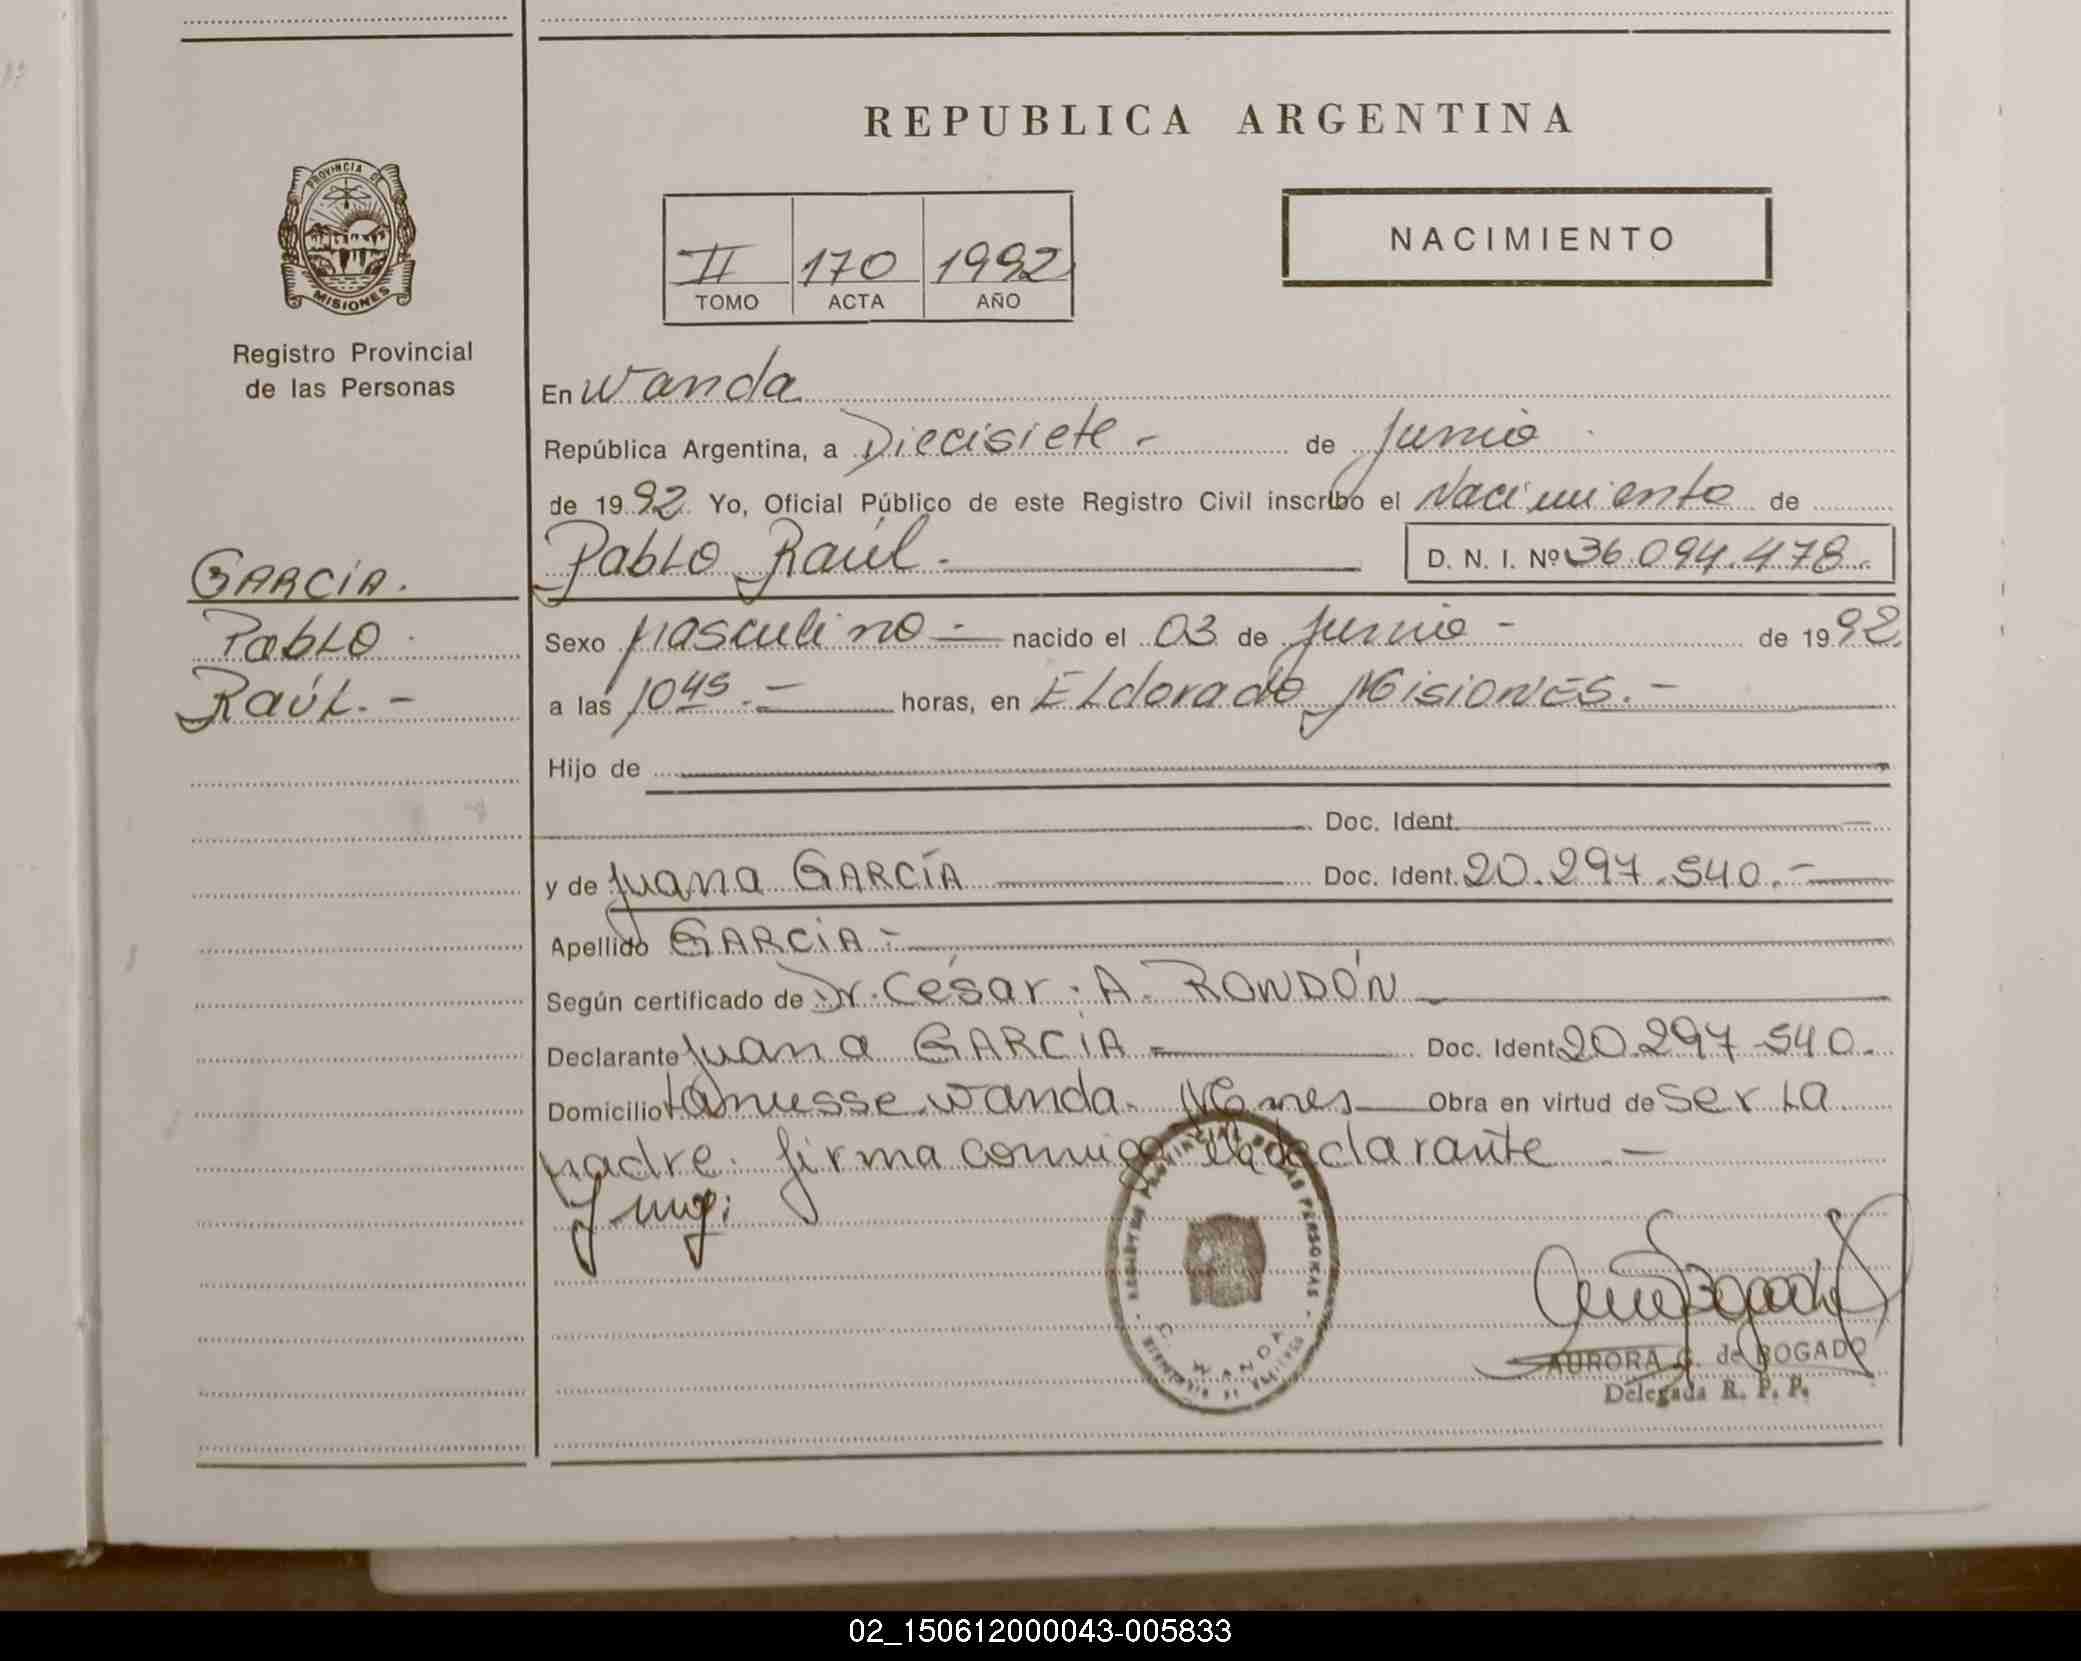 REPUBLICA ARGENTINA
PROVINCIA DE
MISIONES
Registro Provincial
de las Personas
II 170 1992
TOMO ACTA AÑO
NACIMIENTO
En Wanda
República Argentina, a Diecisiete - de Junio
de 1992 Yo, Oficial Público de este Registro Civil inscribo el Nacimiento de
Pablo Raúl. D. N. I. Nº 36.094.478.
GARCÍA.
Pablo
Raúl. -
Sexo Masculino - nacido el 03 de Junio - de 1992
a las 10 45. - horas, en Eldorado Misiones. -
Hijo de
Doc. Ident.
y de Juana GARCÍA Doc. Ident. 20.297.540. -
Apellido GARCÍA -
Según certificado de Dr. César A. RONDÓN
Declarante Juana GARCÍA - Doc. Ident. 20.297.540.
Domicilio Lanusse Wanda. Obra en virtud de ser La
madre. firma conmigo la declarante -
REGISTRO PROVINCIAL DE LAS PERSONAS
WANDA
AURORA G. de BOGADO
Delegada R. P. P.
02_150612000043-005833